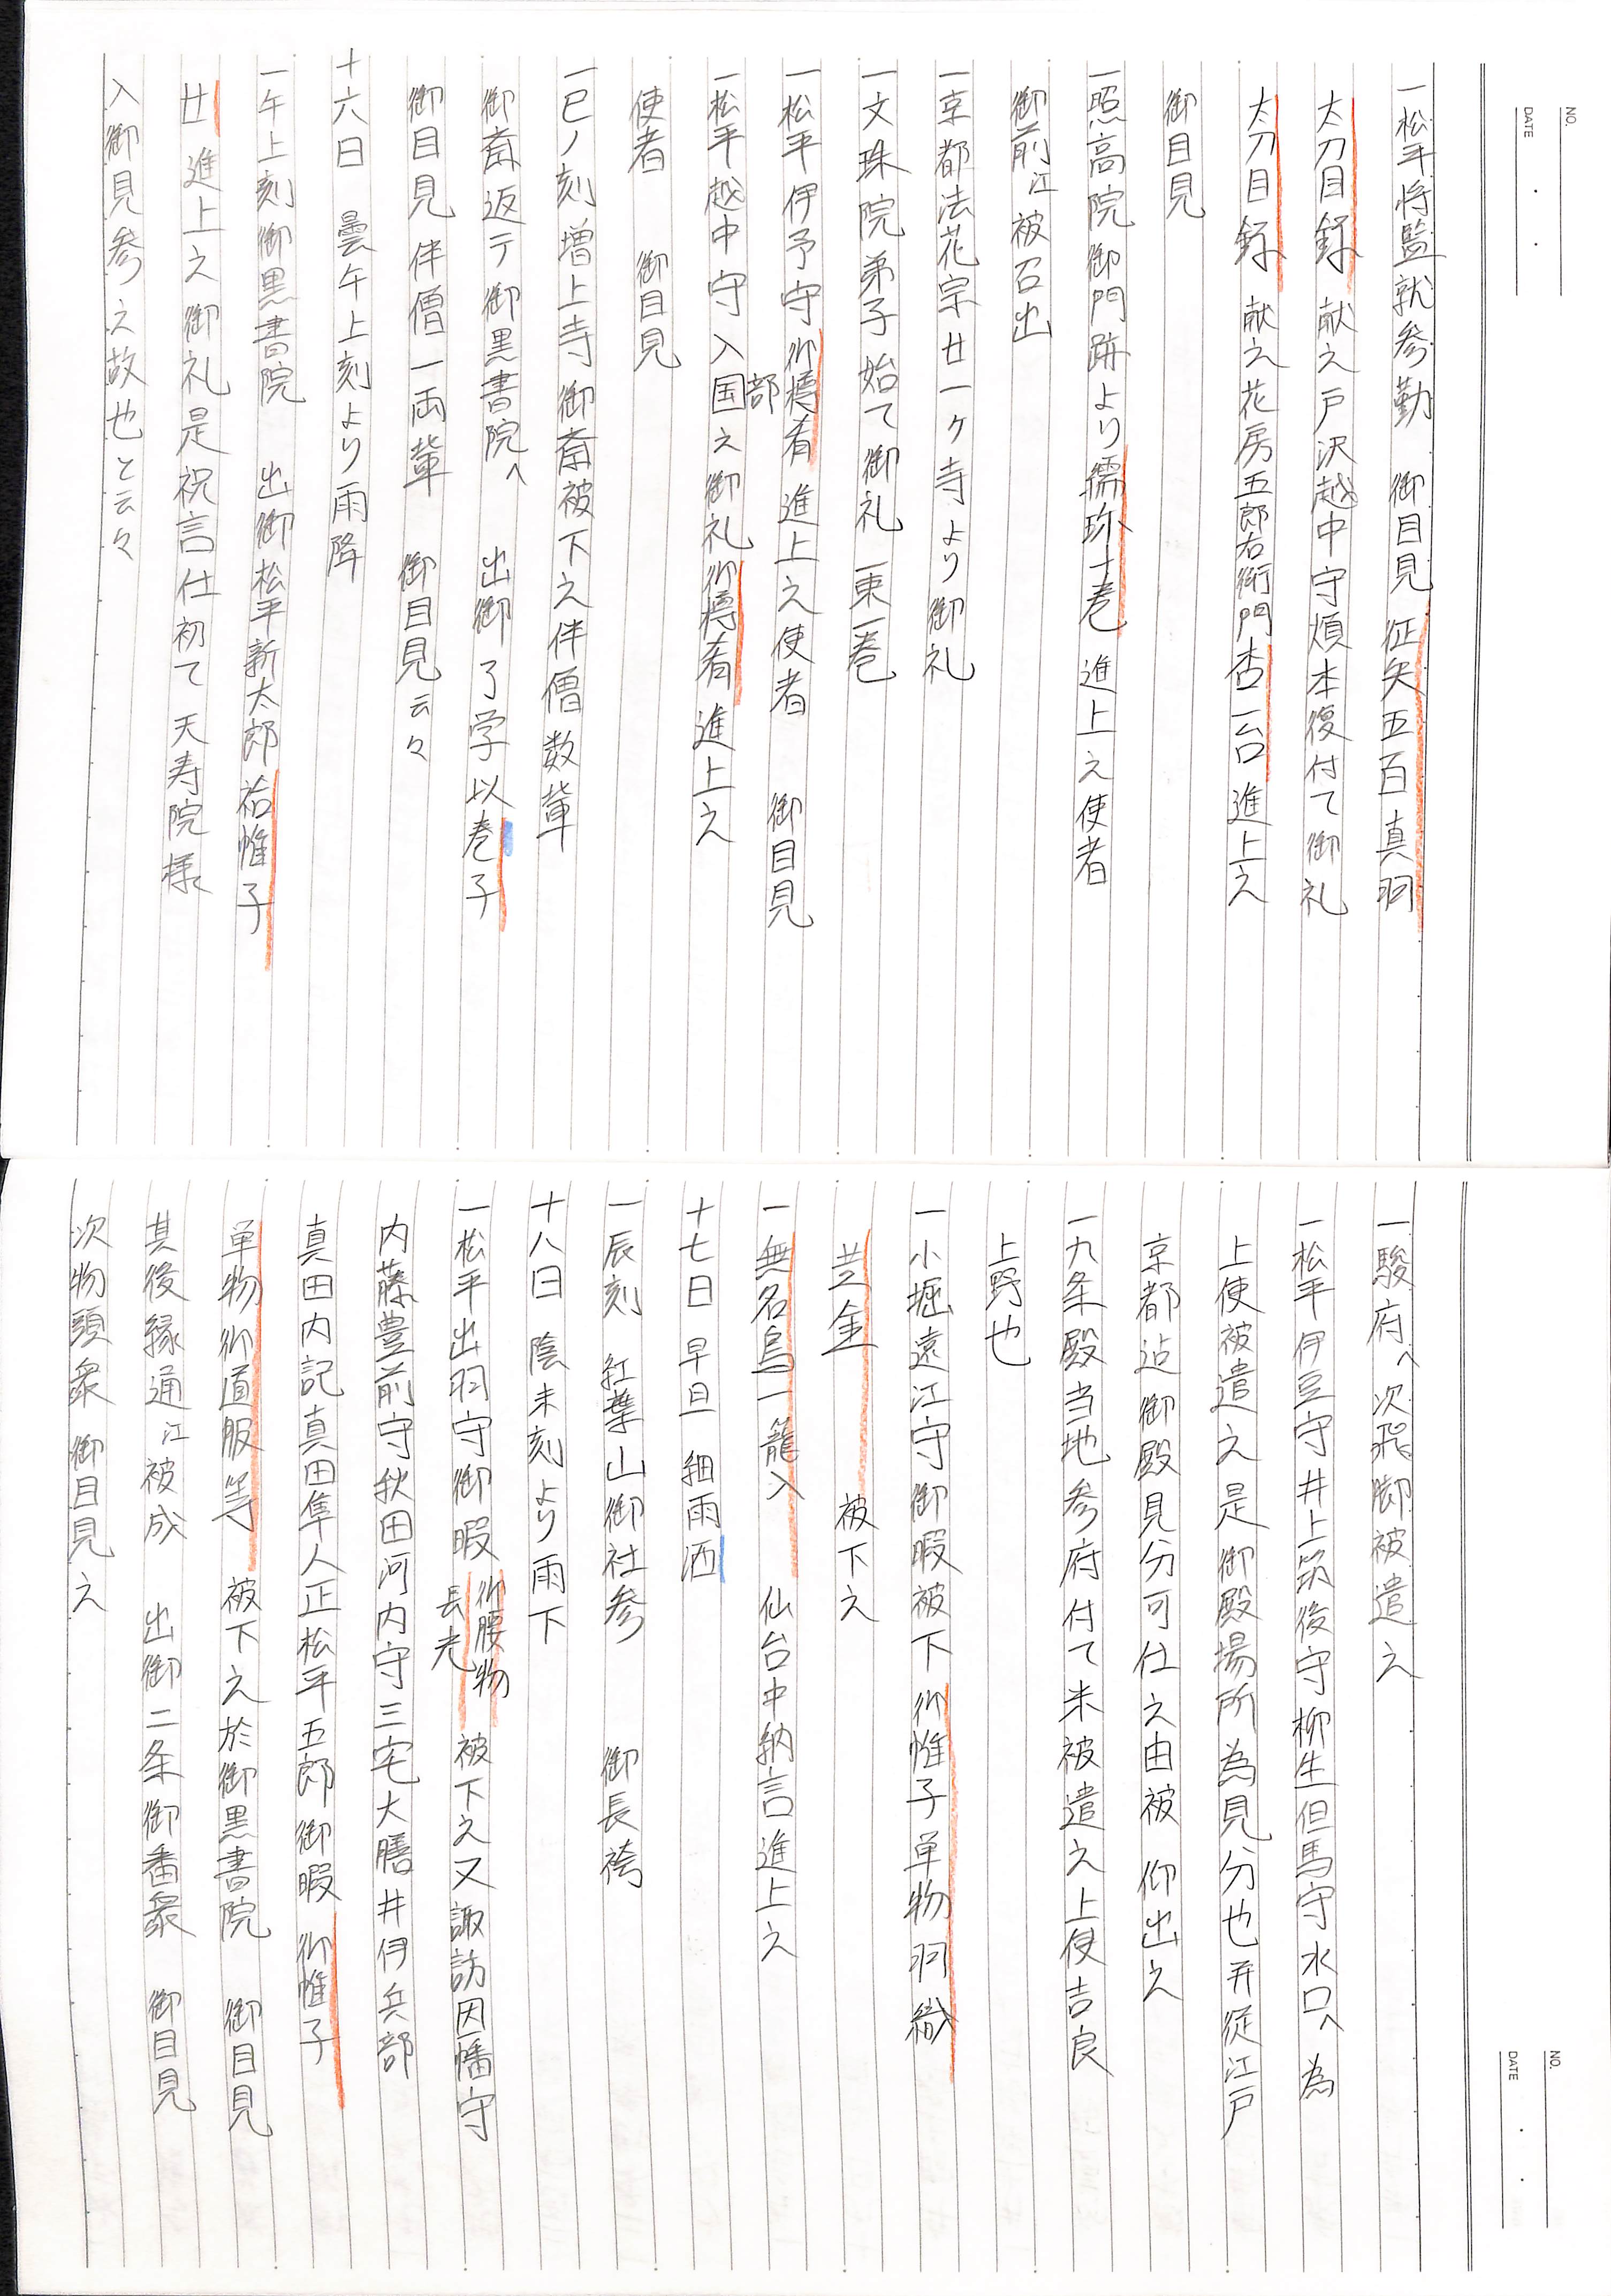 NO.
DATE
一松平将監就参勤 御目見 征矢五百真羽
太刀目録 献之戸沢越中守煩本復付て御礼
太刀目録 献之花房五郎右衛門杏一台進上之
御目見
一照高院御門跡より繻珍十巻 進上之使者
御前江被召出
一京都法花宗廿一ケ寺より御礼
一文珠院弟子始て御礼一束一巻
一松平伊予守御樽肴 進上之使者 御目見
部
一松平越中守入国之御礼御樽肴進上之
使者 御目見
一巳ノ刻増上寺御斎被下之伴僧数輩
御斎返テ御黒書院へ 出御了学以巻子
御目見伴僧一両輩 御目見云々
十六日 曇午上刻より雨降
一午上刻御黒書院 出御松平新太郎袷帷子
廿 進上之御礼是祝言仕初て天寿院様
入御見参之故也と云々
NO.
DATE
一駿府へ次飛脚被遣之
一松平伊豆守井上筑後守柳生但馬守水口へ為
上使被遣之是御殿場所為見分也并従江戸
京都迠御殿見分可仕之由被 仰出之
一九条殿当地参府付て米被遣之上使吉良
上野也
一小堀遠江守御暇被下 御帷子単物羽織
並金 被下之
一無名鳥一籠入 仙台中納言進上之
十七日 早旦 細雨洒
一辰刻 紅葉山御社参 御長袴
十八日 陰未刻より雨下
一松平出羽守御暇 御腰物長光 被下之又諏訪因幡守
内藤豊前守秋田河内守三宅大膳井伊兵部
真田内記真田隼人正松平五郎御暇 御帷子
単物御道服等 被下之於御黒書院 御目見
其後縁通江被成 出御二条御番衆 御目見
次物頭衆御目見之